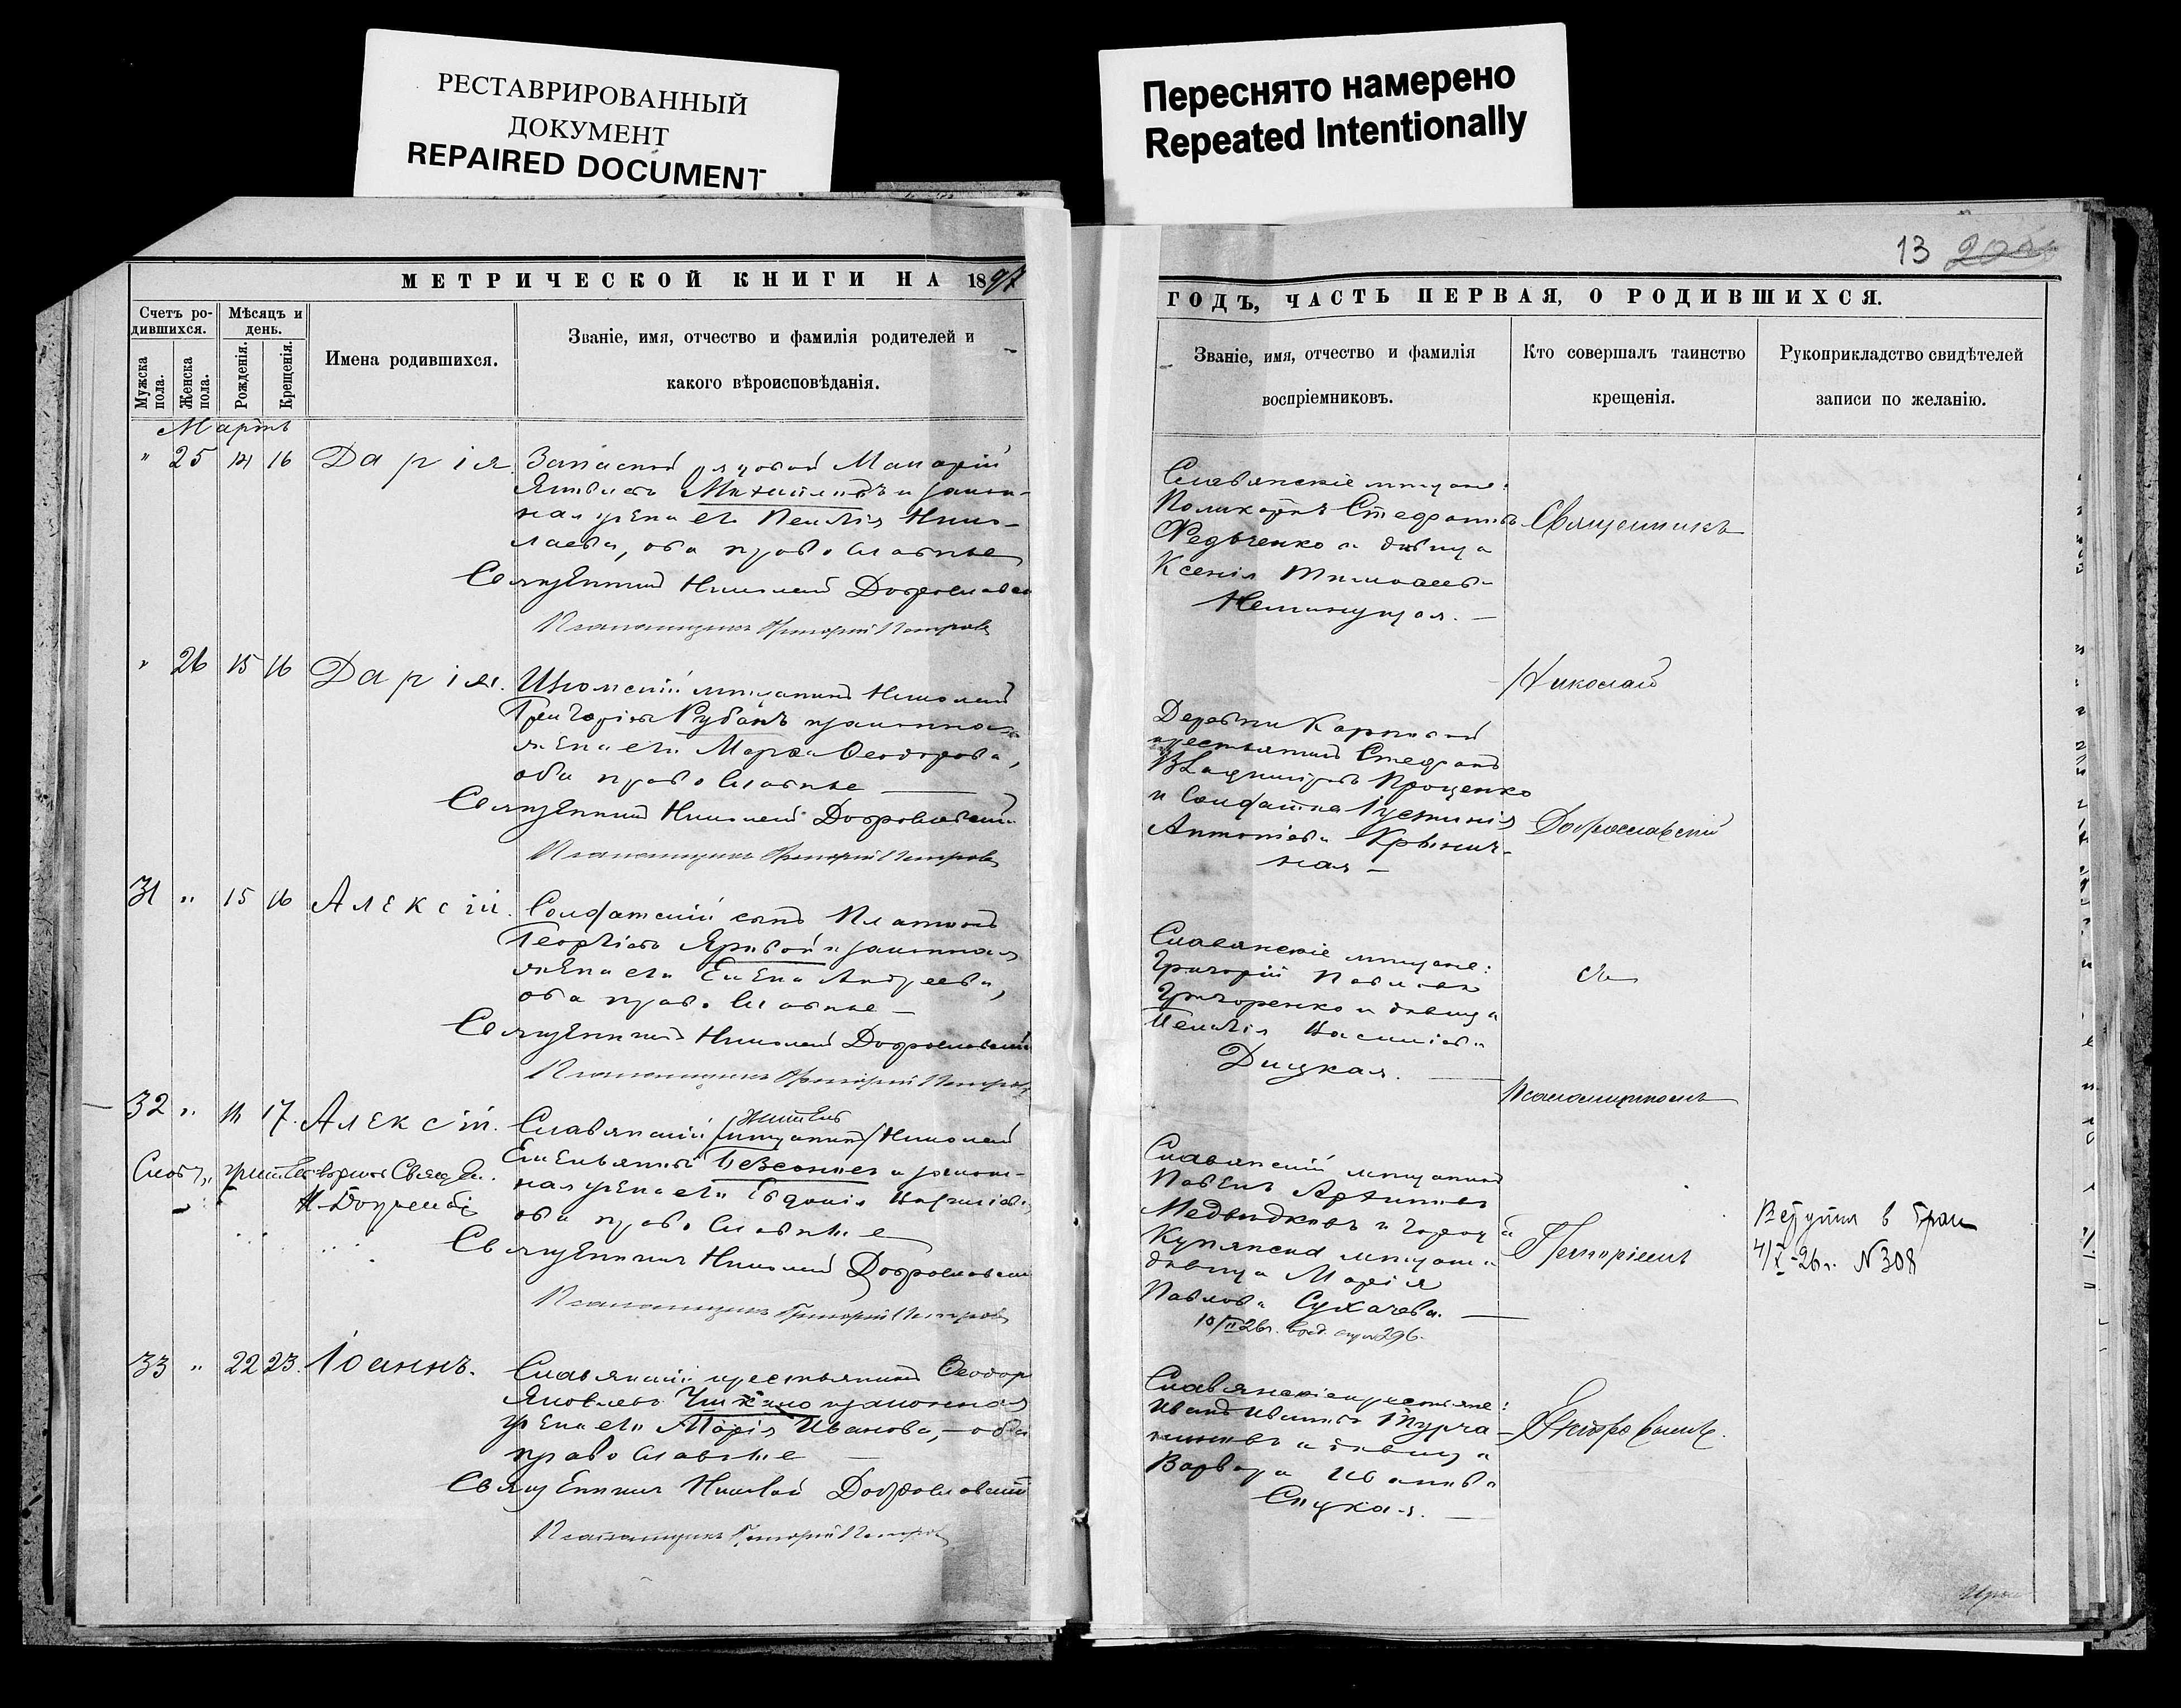 РЕСТАВРИРОВАННЫЙ
ДОКУМЕНТ
REPAIRED DOCUMENT
Переснято намерено
Repeated Intentionally
13
МЕТРИЧЕСКОЙ КНИГИ НА 1897
Счетъ ро-
дившихся.
Мужска
пола.
Женска
пола.
Мѣсяцъ и
день.
Рожденія.
Крещенія.
Имена родившихся.
Званіе, имя, отчество и фамилія родителей и
какого вѣроисповѣданія.
Мартъ
" 25 14 16 Дарія.
Запасной рядовой Макарій
Яковлевъ Михайловъ и закон-
ная жена его Пелагія Нико-
лаева, оба православные
Священникъ Николай Доброславскій
Псаломщикъ Григорій Петровъ
" 26 15 16 Дарія.
мѣщанинъ Николай
Григоріевъ Рубанъ и законная
жена его Марѳа Ѳеодорова,
оба православные
Священникъ Николай Доброславскій
Псаломщикъ Григорій Петровъ
31 " 15 16 Алексій.
Солдатскій сынъ Платонъ
Георгіевъ Яровой и законная
жена его Елена Андреева,
оба православные
Священникъ Николай Доброславскій
Псаломщикъ Григорій Петровъ
32 " 16 17. Алексій.
житель
Славянскій /мѣщанинъ/ Николай
Емельяновъ и закон-
ная жена его Евдокія
оба православные
Священникъ Николай Доброславскій
Псаломщикъ Григорій Петровъ
33 " 22 23. Іоаннъ.
Славянскій крестьянинъ Ѳеодоръ
Яковлевъ и законная
жена его Марія Иванова, — оба
православные
Священникъ Николай Доброславскій
Псаломщикъ Григорій Петровъ
ГОДЪ, ЧАСТЬ ПЕРВАЯ, О РОДИВШИХСЯ.
Званіе, имя, отчество и фамилія
воспріемниковъ.
Кто совершалъ таинство
крещенія.
Рукоприкладство свидѣтелей
записи по желанію.
Славянскіе мѣщане:
Поликарпъ Стефановъ
Федченко и дѣвица
Ксенія Тимоѳеева
Неминущая. —
Деревни Карповой
крестьянинъ Стефанъ
Владиміровъ Проценко
и солдатка Іустинія
Антоніева Кринич-
ная —
Славянскіе мѣщане:
Григорій Павловъ
Григоренко и дѣвица
Пелагія Василіева
Дицкая. —
Славянскій мѣщанинъ
Павелъ Архиповъ
Медвидковъ и города
Купянска мѣщан.
дѣвица Марія
Павлова Сухачева. —
Славянскіе крестьяне:
Иванъ Ивановъ Турча-
ниновъ и дѣвица
Варвара Иванова
Спуская. —
Священникъ
Николай
Доброславскій
съ
Псаломщикомъ
Григоріемъ
Петровымъ.
4/X-26 г. N 308